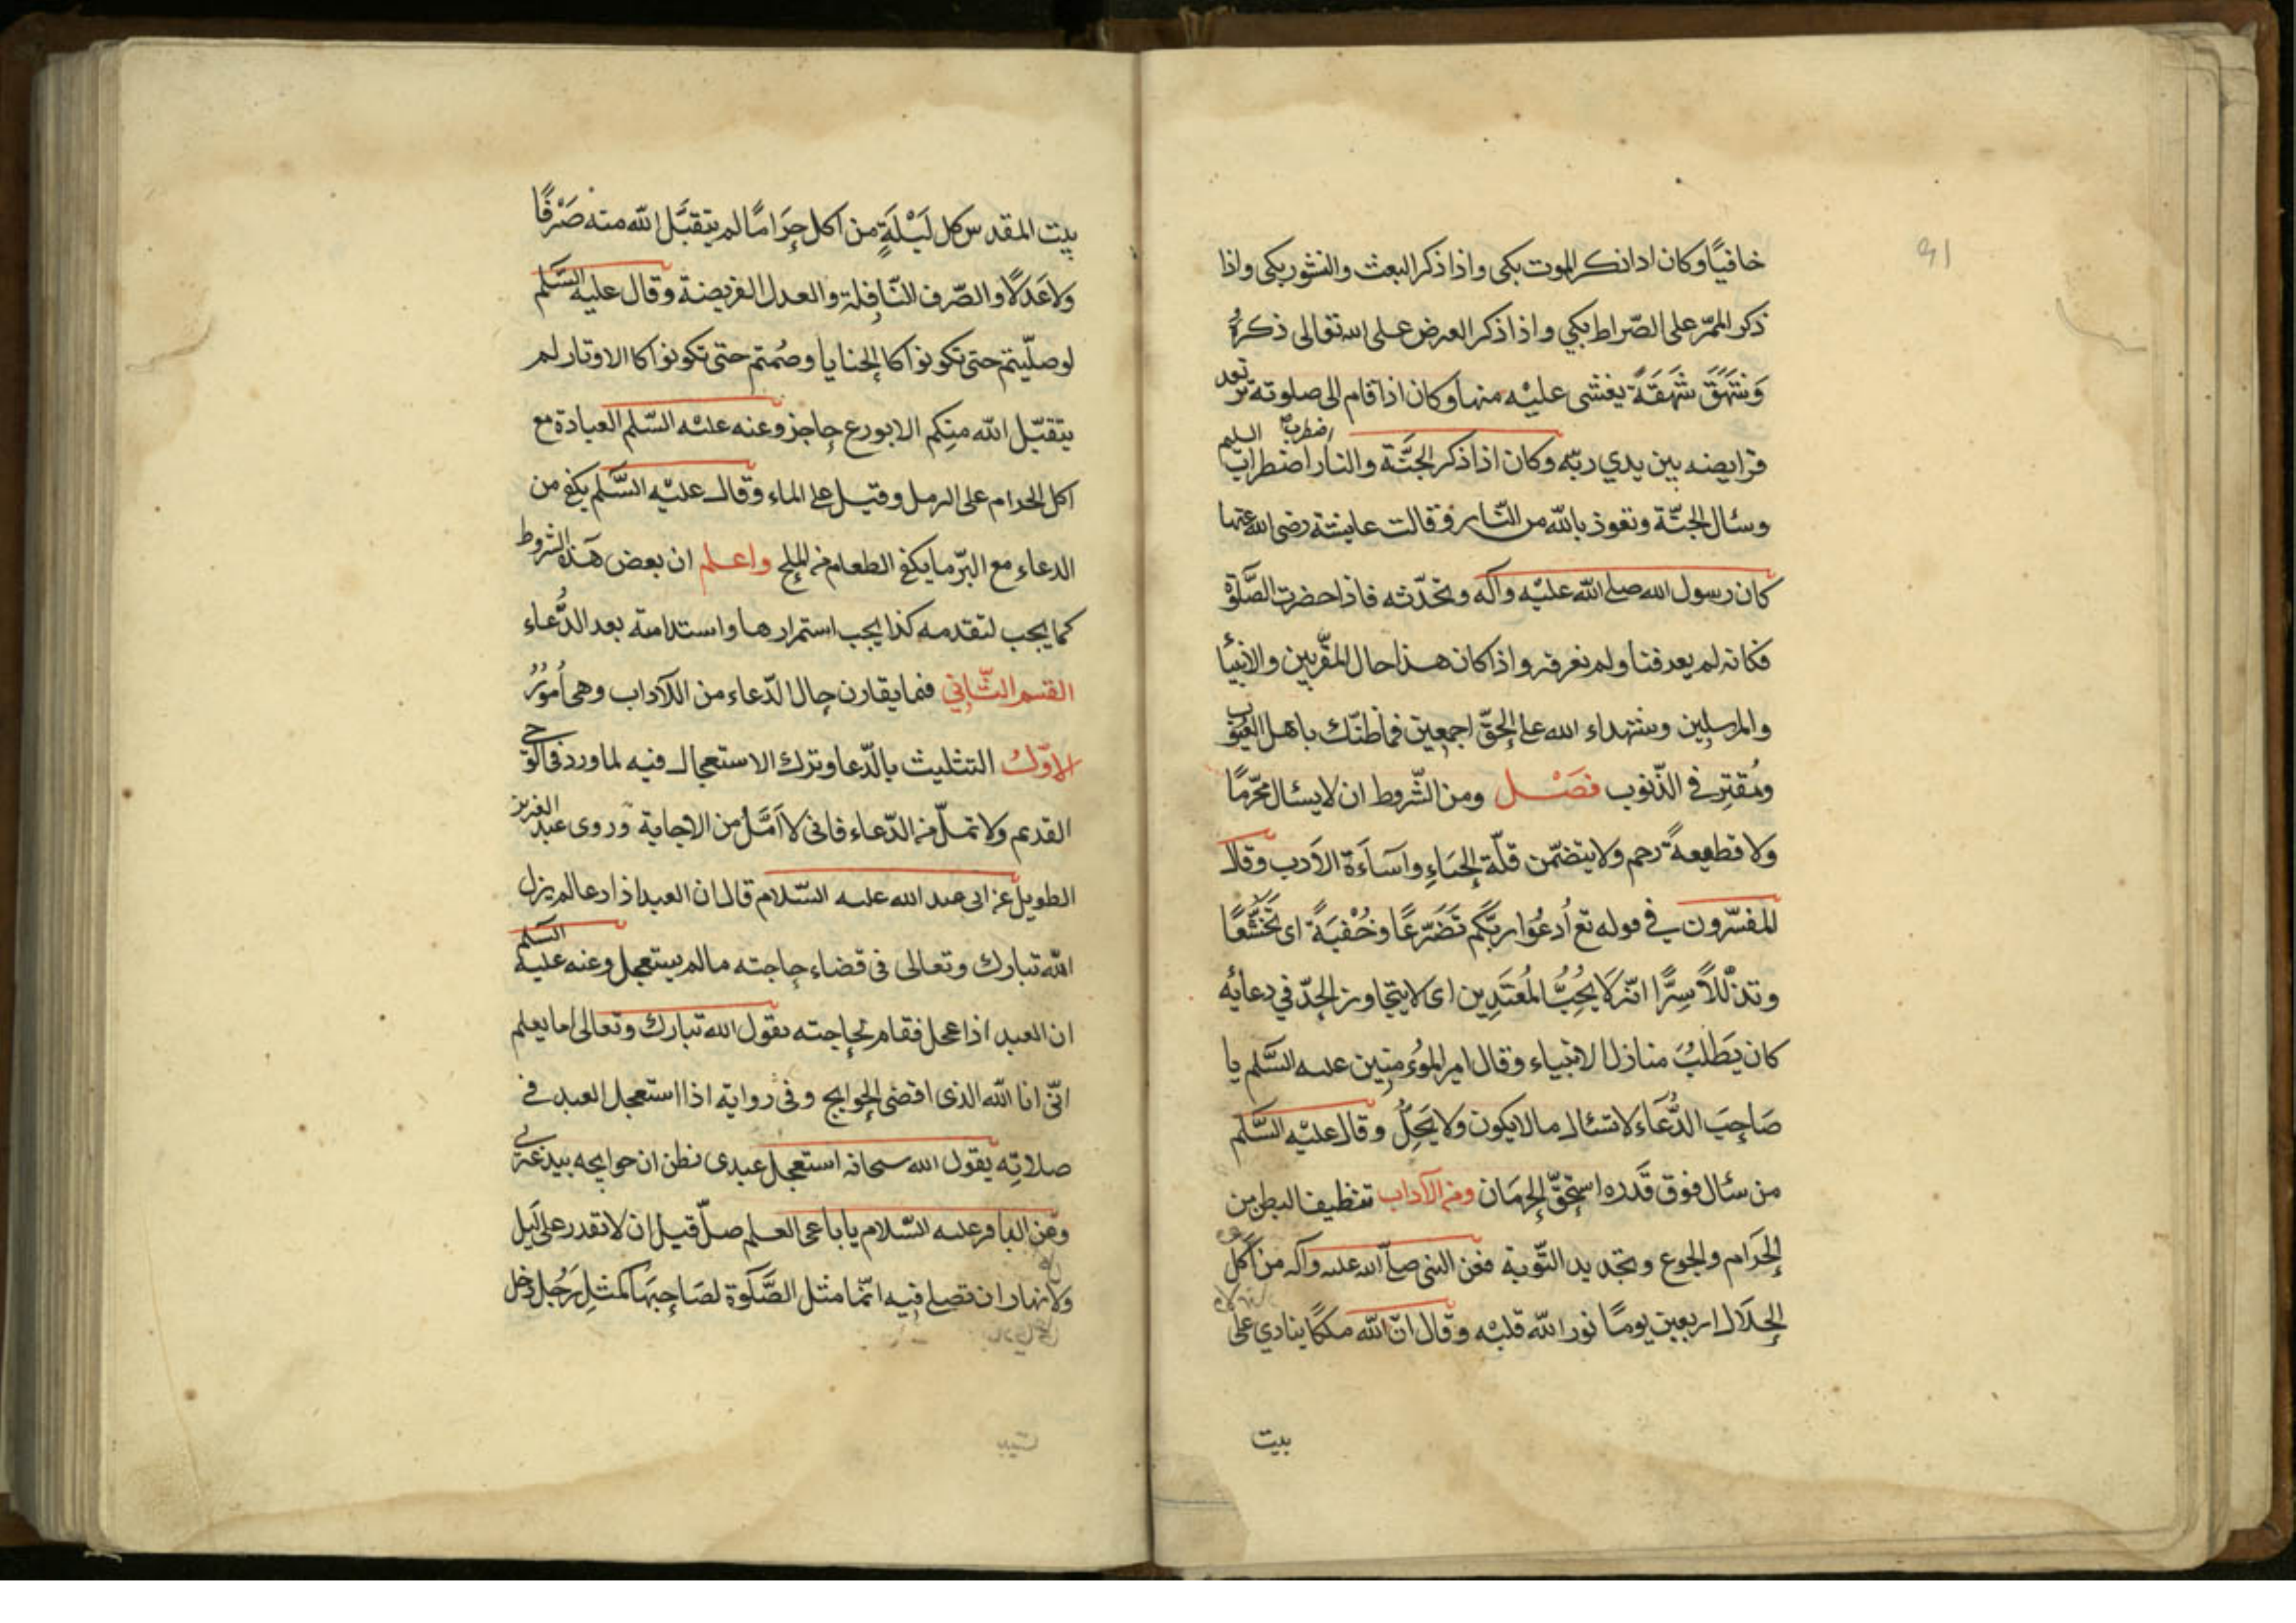 91
خافيًا وكان اذا ذكر الموت بكى واذا ذكر البعث والنشور بكى واذا
ذكر الممرّ على الصّراط بكي واذا ذكر العرض على الله تعالى ذكره
وَشَهَقَ شَهَقَةً يغشى عليْه منها وكان اذا قام الى صلوته ترتعد
فرايصه بين يدي ربّه وكان اذا ذكر الجنَّة والنار اضطرب اضطراب السليم
وسئال الجنّة وتعوذ بالله من النّار وقالت عايشة رضى الله عنها
كان رسول الله صلى الله عليْه وآله يحدّثنا ونحدّثه فاذا حضرت الصَّلوٰة
فكانه لم يعرفنا ولم نعرفه واذا كان هذا حال المقرّبين والانبيا
والمرسلين وشهداء الله على الحقّ اجمعين فما ظنّك باهل العيوب
ومُقتِرِفي الذّنوب فصْل ومن الشّروط ان لا يسئال محرّمًا
ولا قطيعةً رحم ولا يتضمّن قلّة الحَيَاءِ واسَآءَة الاَدب وقال
المفسّرون في قوله تع اُدعُوا ربّكم تَضَرّعًا وخُفْيَةً اى تخَشُّعًا
وتذلّلاً سِرًّا انّه لَا يُحِبُّ المُعتَدِين اى لا يتجاوز الحدّ في دعائه
كان يَطلُبُ منازل الانبياء وقال امير الموُمنِين عليه السَّلم يا
صَاحِبَ الدُّعَاء لا تسئال ما لا يكون ولا يَحِلُّ وقال عليْه السَّلم
من سئال فوق قَدره استحَقّ الحِرمَان ومن الآداب تنظيف البطن من
الحَرَام والجوع وتجديد التّوبة فعَن النبى صلّى الله عليه وآله من اكل
الحَلَال اربعين يومًا نور الله قلبْه وقال انّ لله ملكًا ينادي على
بيت
بيت المقدس كل لَيْلَةٍ من اكل حَرَامًا لم يتقبَّل الله منه صَرْفًا
ولا عَدلًا والصّرف النّافلة والعدل الفريضة وقال عليه السَّلم
لو صلّيتم حتى تكونوا كالحنايا وصُمتم حتى تكونوا كا الاوتار لم
يتقبّل الله منِكم الا بورع حاجز وعنه عليْه السّلم العبادة مع
اكل الحرام على الرمل وقيل على الماء وقال عليْه السَّلم يكفى من
الدعاء مع البرّ ما يكفى الطعام من الملح واعلم ان بعض هذه الشروط
كما يجب لتقدمه كذا يجب استمرارها واستدامة بعد الدُّعاء
القسم الثّاني فيما يقارن حال الدّعاء من الاَداب وهى اُموُرٌ
الاوّل التثليث بالدّعا وترك الاستعجال فيه لما ورد في الوحى
القديم ولا تملّ من الدّعاء فانى لا اَمَلُّ من الاجابة وروى عبد العزيز
الطويل عن ابى عبد الله عليه السّلام قال ان العبد اذا دعا لم يزل
الله تبارك وتعالى فى قضاء حاجته ما لم يستعجل وعنه عليه السَّلم
ان العبد اذا عجل فقام لحاجته يقول الله تبارك وتعالى اما يعلم
انّى انا الله الذى اقضى الحوايج وفى رواية اذا استعجل العبد فى
صلاتِه يقول الله سبحانه استعجل عبدى يظن ان حوايجه بيد غيرى
وعن الباقر عليه السّلام يا باغى العلم صلّ قبل ان لا تقدر على لَيل
ولا نهار ان تصلى فيه انّما مثل الصَّلوٰة لصَاحِبهَا كمثل رَجُل دخل